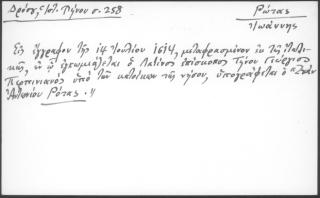 Δρόσ., Ιστ. Τήνου σ. 258
Ρώτας
Ιωάννης
Εις έγγραφον της 14 Ιουλίου 1614, μεταφρασμένον εκ της Ιταλι-
κής, εν ω εγκωμιάζεται ο Λατίνος επίσκοπος Τήνου Γεώργιος
Περπινιανός υπό των κατοίκων της νήσου, υπογράφεται ο "Ζουάν
Αντωνίου Ρότας."